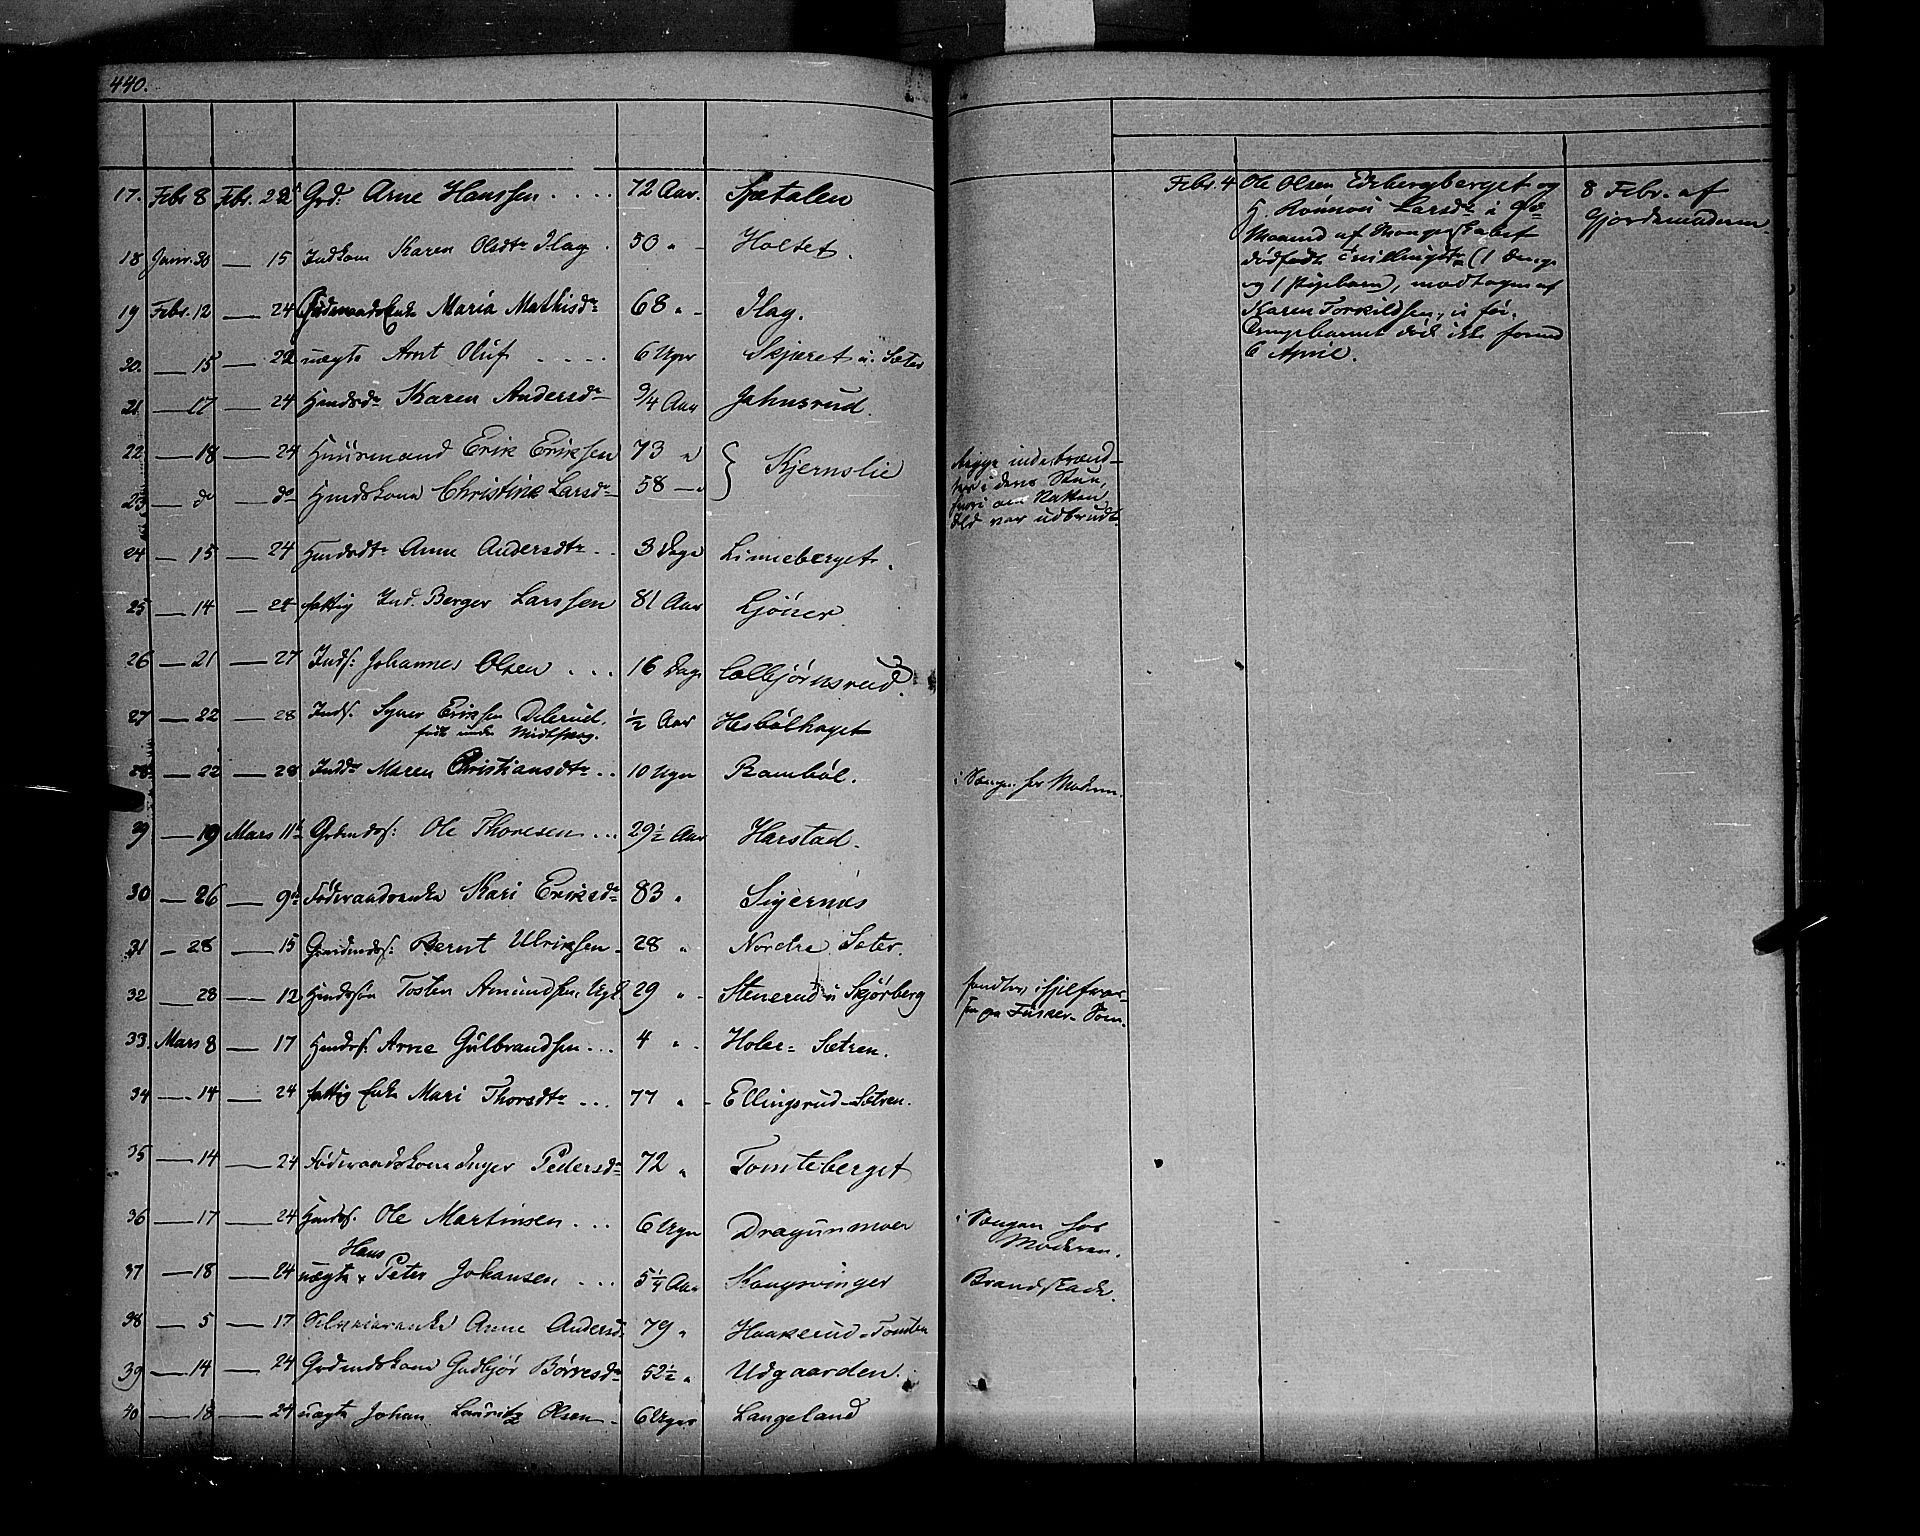 440.
17. Febr 8 Febr. 22 Grd. Arne Hanssen .... 72 Aar. Sætalen
18 Janr. 30 — 15 Indkone Karen Olsdtr Ilag . 50 " - Holtet.
19 Febr. 12 — 24 Føderaads Enke Maria Mathisdr 68 " - Ilag.
20. — 15 — 22 uægte Arnt Oluf .... 6 Uger Skjæret u. Sæter
21 — 17 — 24 Husmdr Karen Andersdr 9/4 Aar Jahnsrud.
22 — 18 — 24 Huusmand Erik Eriksen 73 " } Kjernslie
23 — do — do Husmdskone Christine Larsdr 58 — "
24 — 15 — 24 Husmdsdtr Anne Andersdtr .. 3 Dage Linneberget.
25 — 14 — 24 fattig Ind. Berger Larssen 81 Aar Ljöner.
26 — 21 — 27 Inds: Johannes Olsen ... 16 Dage Colbjørnsrud.
27 — 22 — 28 Inds. Syver Eriksen Delerud. ½ Aar Hesbölhaget
født under
28. — 22 — 28 Inddr Maren Christiansdtr .. 10 Ugr Ramböl.
29 — 19 Mars 11 Grdmds: Ole Thoresen ... 29½ Aar Harstad.
30 — 26 — 9 Føderaadsenke Kari Eriksdr 83 " Sigernæs
31 — 28 — 15 Grdmds: Bernt Ulriksen - 28 " Nordre Sæter.
32 — 28 — 12 Husmdssøn Tosten Amundsen, Ugt 29 " - Stenerud u Skjörberg
33. Mars 8 — 17 Husmds. Arne Gulbrandsen ... 4 " - Holer- Sætren.
34 — 14 — 24 fattig Enke Mari Thorsdtr ... 77 " - Ellingsrud-Sætren.
35 — 14 — 24 Føderaadskone Inger Pedersdr 72 " Tomteberget
36 — 17 — 24 Husmds. Ole Martinsen ... 6 Ugr Dragunmoen
Hans
37 — 18 — 24 uægte x Peter Johansen ... 5¼ Aar Kongsvinger
38 — 5 — 17 Selveierenke Anne Andersd. 79 " Haakerud-Tomten
39 — 14 — 24 Grdmdskone Gudbjör Börresdr 52½ " Udgaarden.
40 — 18 — 24 uægte Johan Lauritz Olsen - 6 Uger Langeland
Begge indebrændte i deres Stue, hvori om Natten
Ild var udbrudt.
i Sengen hos Moderen.
fandtes i
i Sengen hos
Moderen.
Brandskade.
Febr. 4 Ole Olsen Edebergberget og
H. Rönnoü Larsdr i
Maaned af
dødfødte Tvillinger (1 Dreng
og 1 Pigebarn), modtagen af
Karen Torkildsen,
Drengebarnet død ikke forend
6 April.
8 Febr. af
Gjordemoderen.